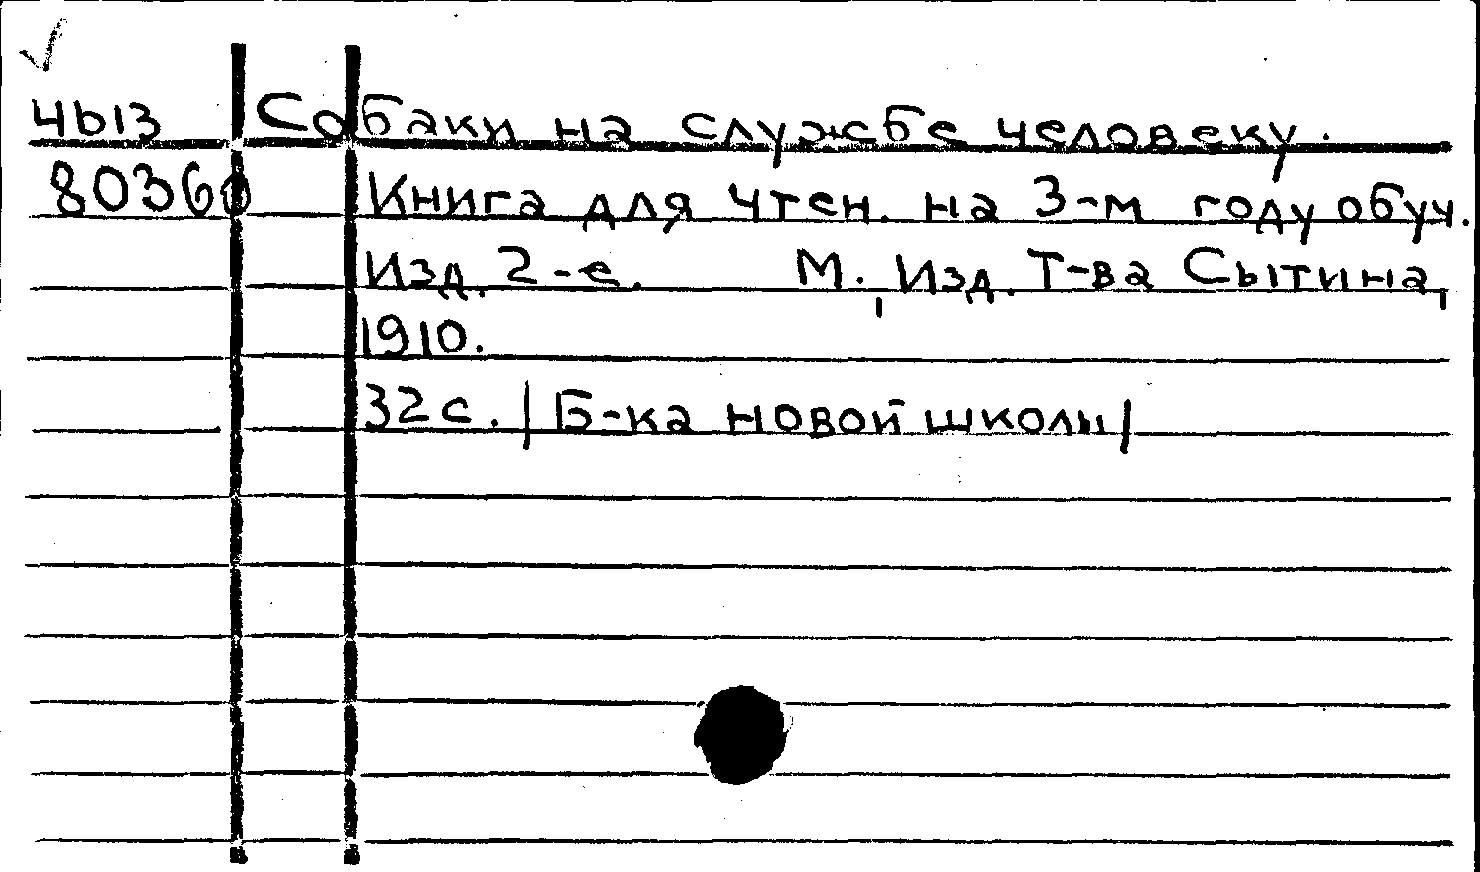 ЧЫЗ Собаки на службе человеку.
80360 Книга для чтен. на 3-м году обуч.
Изд. 2-е. М., Изд. Т-ва Сытина,
1910.
32с. | Б-ка новой школы |